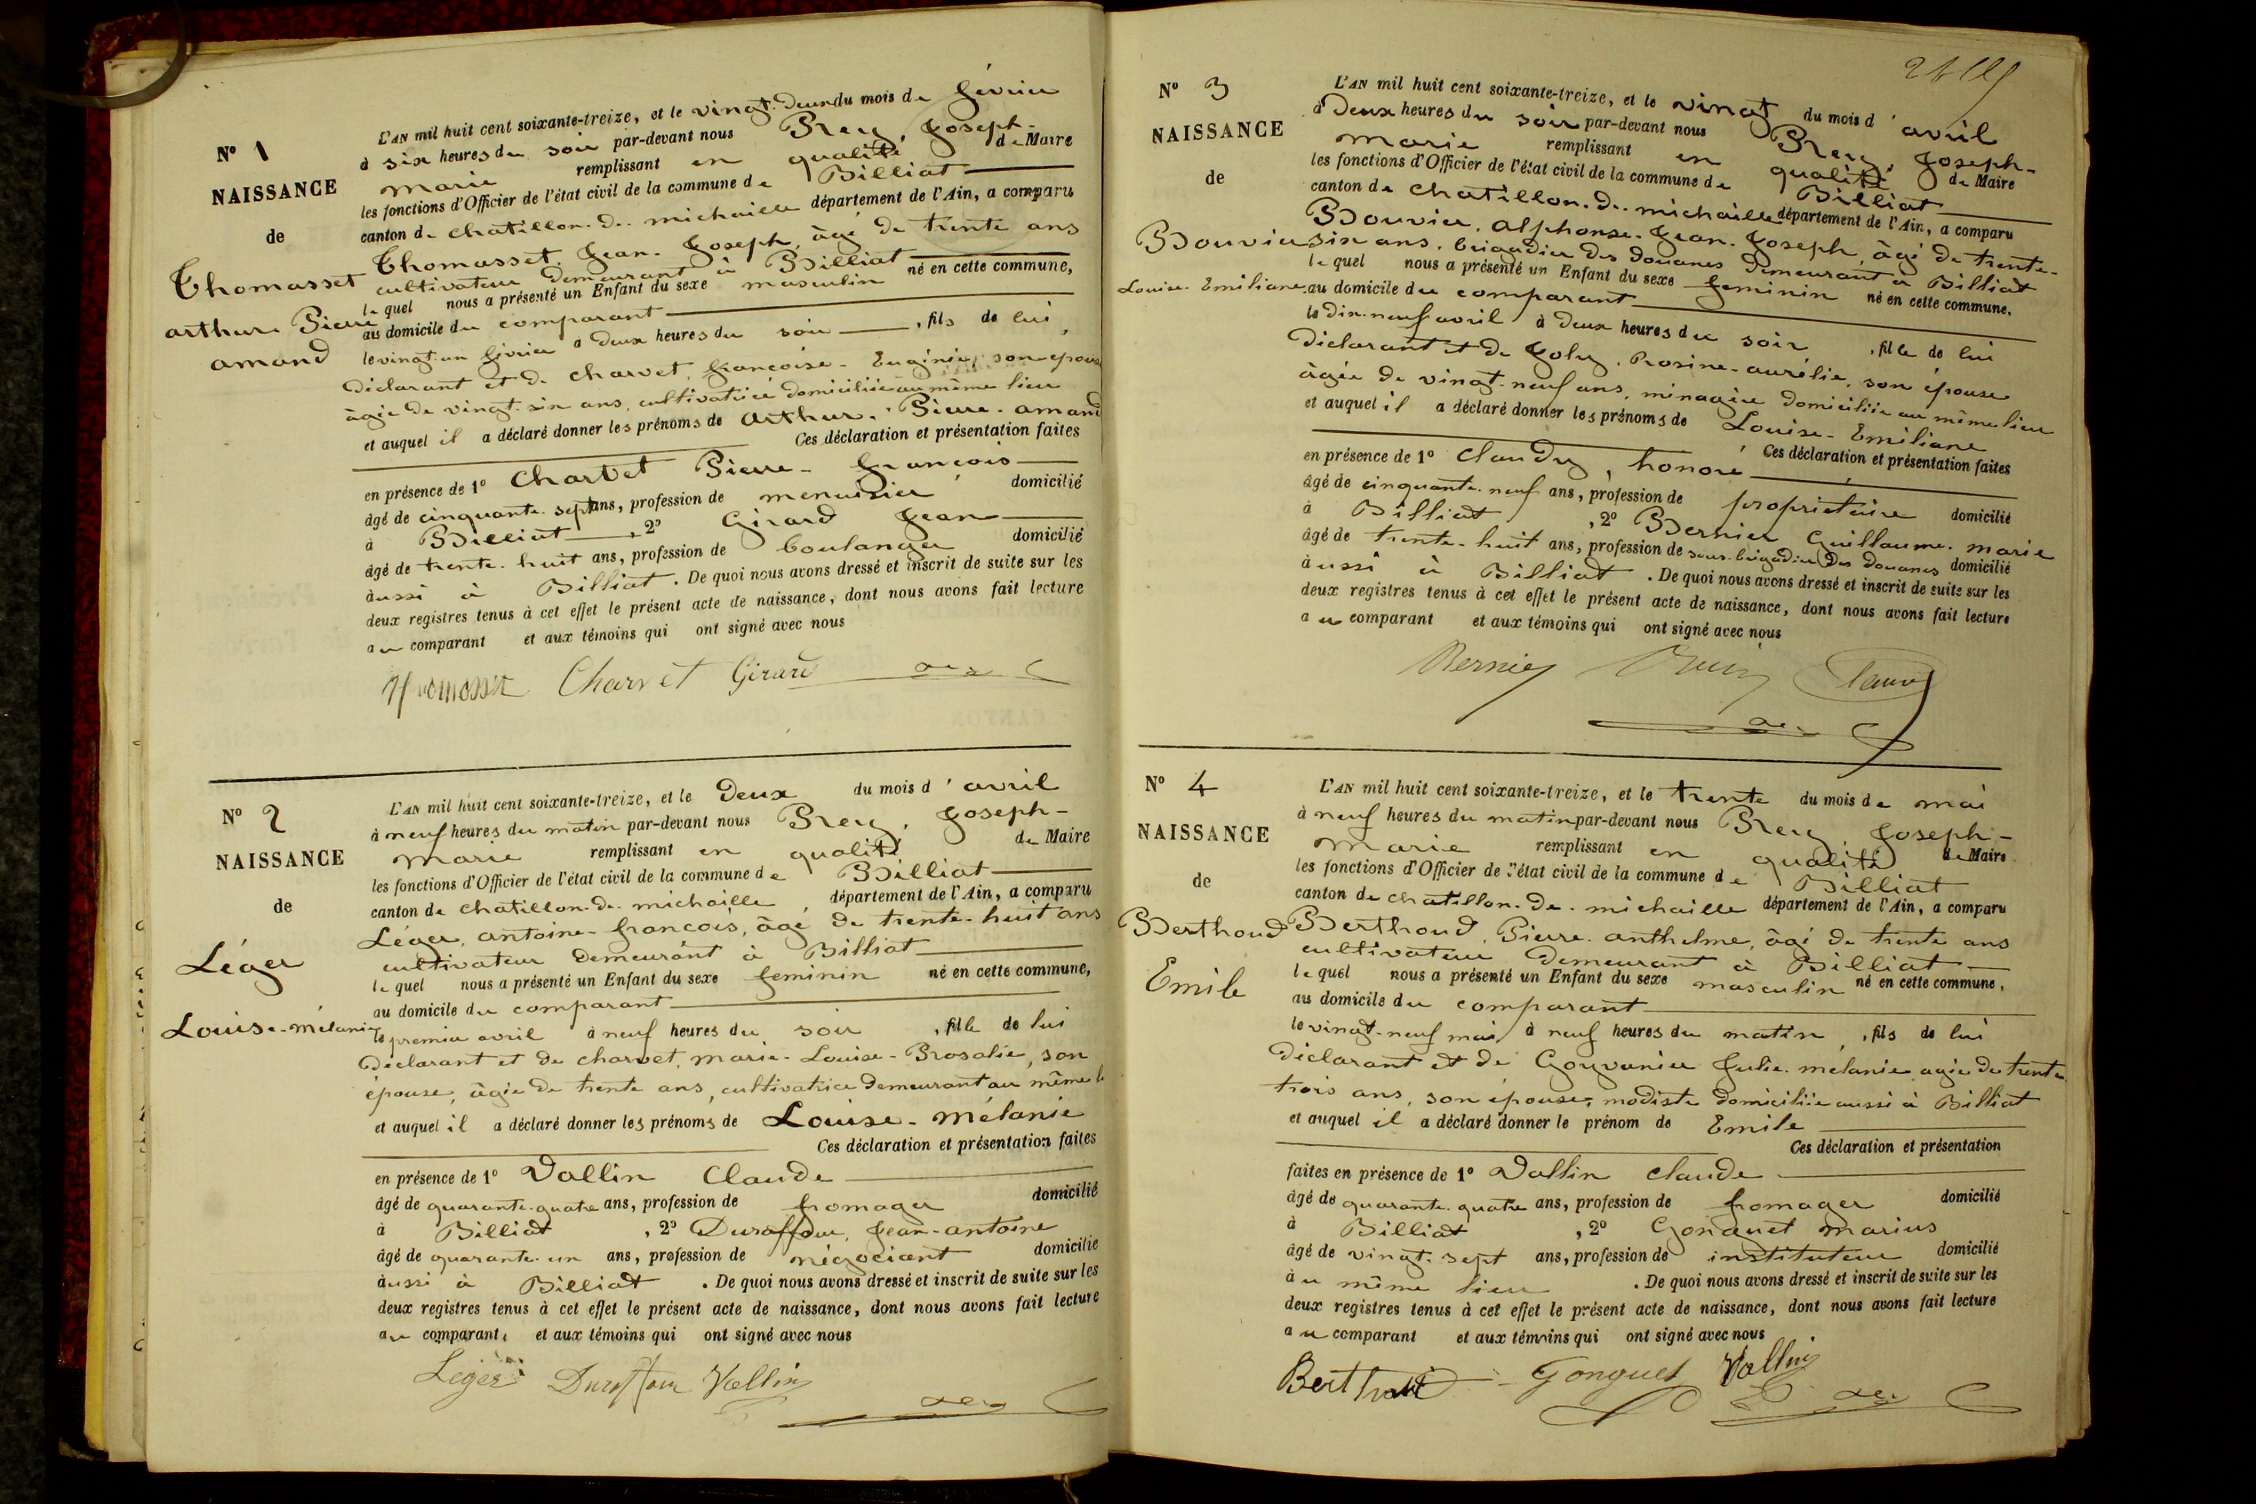 N° 1
NAISSANCE
de
Thomasset
arthur Pierre
amand
L'AN mil huit cent soixante-treize, et le vingt-deux du mois de février
à six heures du soir par-devant nous Prery, Joseph-
marie remplissant en qualité de Maire
les fonctions d'Officier de l'état civil de la commune de Billiat
canton de chatillon-de-michaille département de l'Ain, a comparu
Thomasset, Jean-Joseph, âgé de trente ans
cultivateur demeurant à Billiat
le quel nous a présenté un Enfant du sexe masculin né en cette commune,
au domicile du comparant
le vingt-un février à deux heures du soir, fils de lui
déclarant et de charvet, françoise-Eugénie, son épouse
âgée de vingt-six ans, cultivatrice domiciliée au même lieu
et auquel il a déclaré donner les prénoms de arthur-Pierre-amand
Ces déclaration et présentation faites
en présence de 1° Charvet Pierre-françois
âgé de cinquante-sept ans, profession de menuisier domicilié
à Billiat, 2° Girard Jean
âgé de trente-huit ans, profession de boulanger domicilié
aussi à Billiat. De quoi nous avons dressé et inscrit de suite sur les
deux registres tenus à cet effet le présent acte de naissance, dont nous avons fait lecture
au comparant et aux témoins qui ont signé avec nous
Thomasset Charvet Girard
N° 2
NAISSANCE
de
Léger
Louise-mélanie
L'AN mil huit cent soixante-treize, et le deux du mois d'avril
à neuf heures du matin par-devant nous Prery, Joseph-
marie remplissant en qualité de Maire
les fonctions d'Officier de l'état civil de la commune de Billiat
canton de chatillon-de-michaille, département de l'Ain, a comparu
Léger, antoine-françois, âgé de trente-huit ans
cultivateur demeurant à Billiat
le quel nous a présenté un Enfant du sexe feminin né en cette commune,
au domicile du comparant
le premier avril à neuf heures du soir, fille de lui
déclarant et de charvet, marie-Louise-Rosalie, son
épouse, âgée de trente ans, cultivatrice demeurant au même
et auquel il a déclaré donner les prénoms de Louise-mélanie
Ces déclaration et présentation faites
en présence de 1° Vallin Claude
âgé de quarante-quatre ans, profession de fromager domicilié
à Billiat, 2° Duraffour, Jean-antoine
âgé de quarante-un ans, profession de négociant domicilié
aussi à Billiat. De quoi nous avons dressé et inscrit de suite sur les
deux registres tenus à cet effet le présent acte de naissance, dont nous avons fait lecture
au comparant, et aux témoins qui ont signé avec nous
Léger Duraffour Vallin
N° 3
NAISSANCE
de
Bouvier
Louise-Emiliane
L'AN mil huit cent soixante-treize, et le vingt du mois d'avril
à deux heures du soir par-devant nous Prery, Joseph-
marie remplissant en qualité de Maire
les fonctions d'Officier de l'état civil de la commune de Billiat
canton de chatillon-de-michaille département de l'Ain, a comparu
Bouvier, alphonse-Jean-Joseph, âgé de trente-
six ans, brigadier des douanes demeurant à Billiat
le quel nous a présenté un Enfant du sexe feminin né en cette commune.
au domicile du comparant
le dix-neuf avril à deux heures du soir, fille de lui
déclarant et de Joly, Rosine-aurélie, son épouse
âgée de vingt-neuf ans, ménagère domiciliée au même lieu
et auquel il a déclaré donner les prénoms de Louise-Emiliane
Ces déclaration et présentation faites
en présence de 1° Claudy, honoré
âgé de cinquante-neuf ans, profession de propriétaire domicilié
à Billiat, 2° Bernier Guillaume-marie
âgé de trente-huit ans, profession de sous-brigadier des douanes domicilié
aussi à Billiat. De quoi nous avons dressé et inscrit de suite sur les
deux registres tenus à cet effet le présent acte de naissance, dont nous avons fait lecture
au comparant et aux témoins qui ont signé avec nous
Bernier
N° 4
NAISSANCE
de
Berthoud
Emile
L'AN mil huit cent soixante-treize, et le trente du mois de mai
à neuf heures du matin par-devant nous Prery Joseph-
marie remplissant en qualité de Maire
les fonctions d'Officier de l'état civil de la commune de Billiat
canton de chatillon-de-michaille département de l'Ain, a comparu
Berthoud, Pierre-anthelme, âgé de trente ans
cultivateur demeurant à Billiat
le quel nous a présenté un Enfant du sexe masculin né en cette commune,
au domicile du comparant
le vingt-neuf mai à neuf heures du matin, fils de lui
déclarant et de Gouvanier Julie-mélanie agée de trente
trois ans, son épouse, modiste domiciliée aussi à Billiat
et auquel il a déclaré donner le prénom de Emile
Ces déclaration et présentation
faites en présence de 1° Vallin claude
âgé de quarante-quatre ans, profession de fromager domicilié
à Billiat, 2° Gonguet marius
âgé de vingt-sept ans, profession de instituteur domicilié
au même lieu. De quoi nous avons dressé et inscrit de suite sur les
deux registres tenus à cet effet le présent acte de naissance, dont nous avons fait lecture
au comparant et aux témoins qui ont signé avec nous
Berthoud Gonguet Vallin